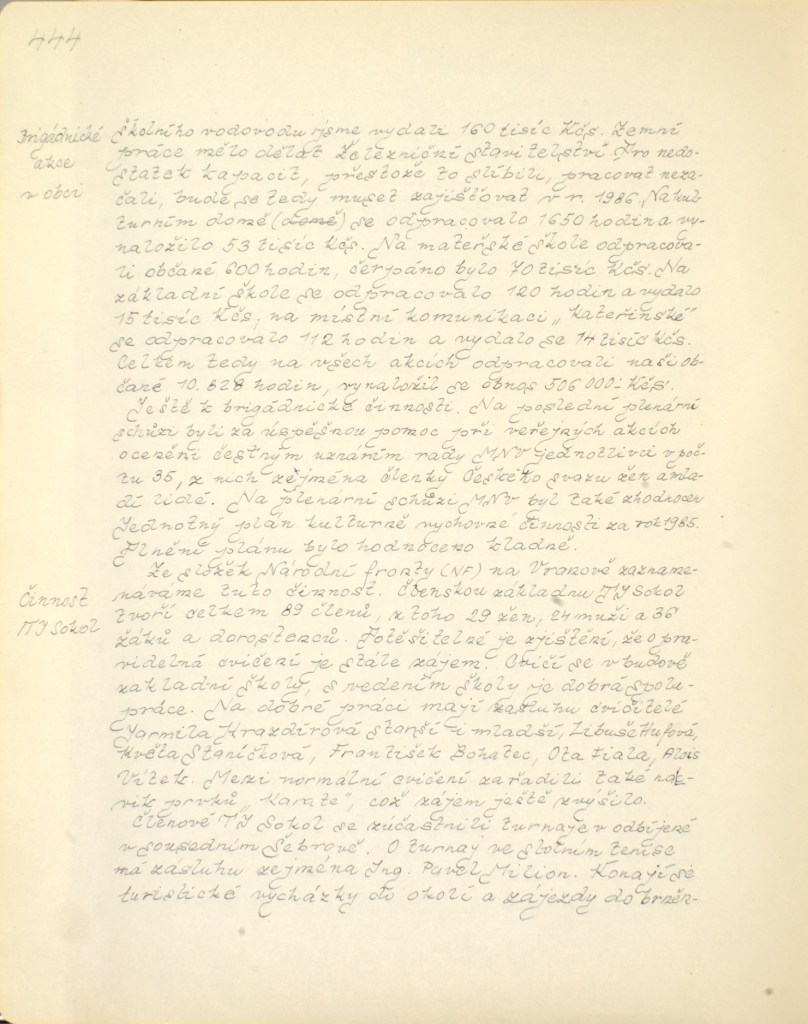 444
Brigádnické
akce
v obci
školního vodovodu jsme vydali 160 tisíc Kčs. Zemní
práce mělo dělat Železniční stavitelství. Pro nedo-
statek kapacit, přestože to slíbili, pracovat neza-
čali, bude se tedy muset zajišťovat v r. 1986. Na kul-
turním domě (domě) se odpracovalo 1650 hodin a vy-
naložilo 53 tisíc Kčs. Na mateřské škole odpracova-
li občané 600 hodin, čerpáno bylo 70 tisíc Kčs. Na
základní škole se odpracovalo 120 hodin a vydalo
15 tisíc Kčs, na místní komunikaci „Kateřinské"
se odpracovalo 112 hodin a vydalo se 14 tisíc Kčs.
Celkem tedy na všech akcích odpracovali naši ob-
čané 10.828 hodin, vynaložil se obnos 506 000.- Kčs.
Ještě k brigádnické činnosti. Na poslední plenární
schůzi byli za úspěšnou pomoc při veřejných akcích
oceněni čestným uznáním rady MNV jednotlivci v poč-
tu 35, z nich zejména členky Českého svazu žen a mla-
dí lidé. Na plenární schůzi MNV byl také zhodnocen
Jednotný plán kulturně výchovné činnosti za rok 1985.
Plnění plánu bylo hodnoceno kladně.
Ze složek Národní fronty (NF) na Vranově zazname-
náváme tuto činnost. Členskou základnu TJ Sokol
tvoří celkem 89 členů, z toho 29 žen, 24 muži a 36
žáků a dorostenců. Potěšitelné je zjištění, že o pra-
videlná cvičení je stále zájem. Cvičí se v budově
základní školy, s vedením školy je dobrá spolu-
práce. Na dobré práci mají zásluhu cvičitelé
Jarmila Krazdírová starší i mladší, Libuše Hufová,
Květa Staníčková, František Bohatec, Ota Fiala, Alois
Vítek. Mezi normální cvičení zařadili také nác-
vik prvků „Karate", což zájem ještě zvýšilo.
Členové TJ Sokol se zúčastnili turnaje v odbíjené
v sousedním Šebrově. O turnaj ve stolním tenise
má zásluhu zejména Ing. Pavel Milion. Konají se
turistické vycházky do okolí a zájezdy do brněn-
Činnost
TJ Sokol